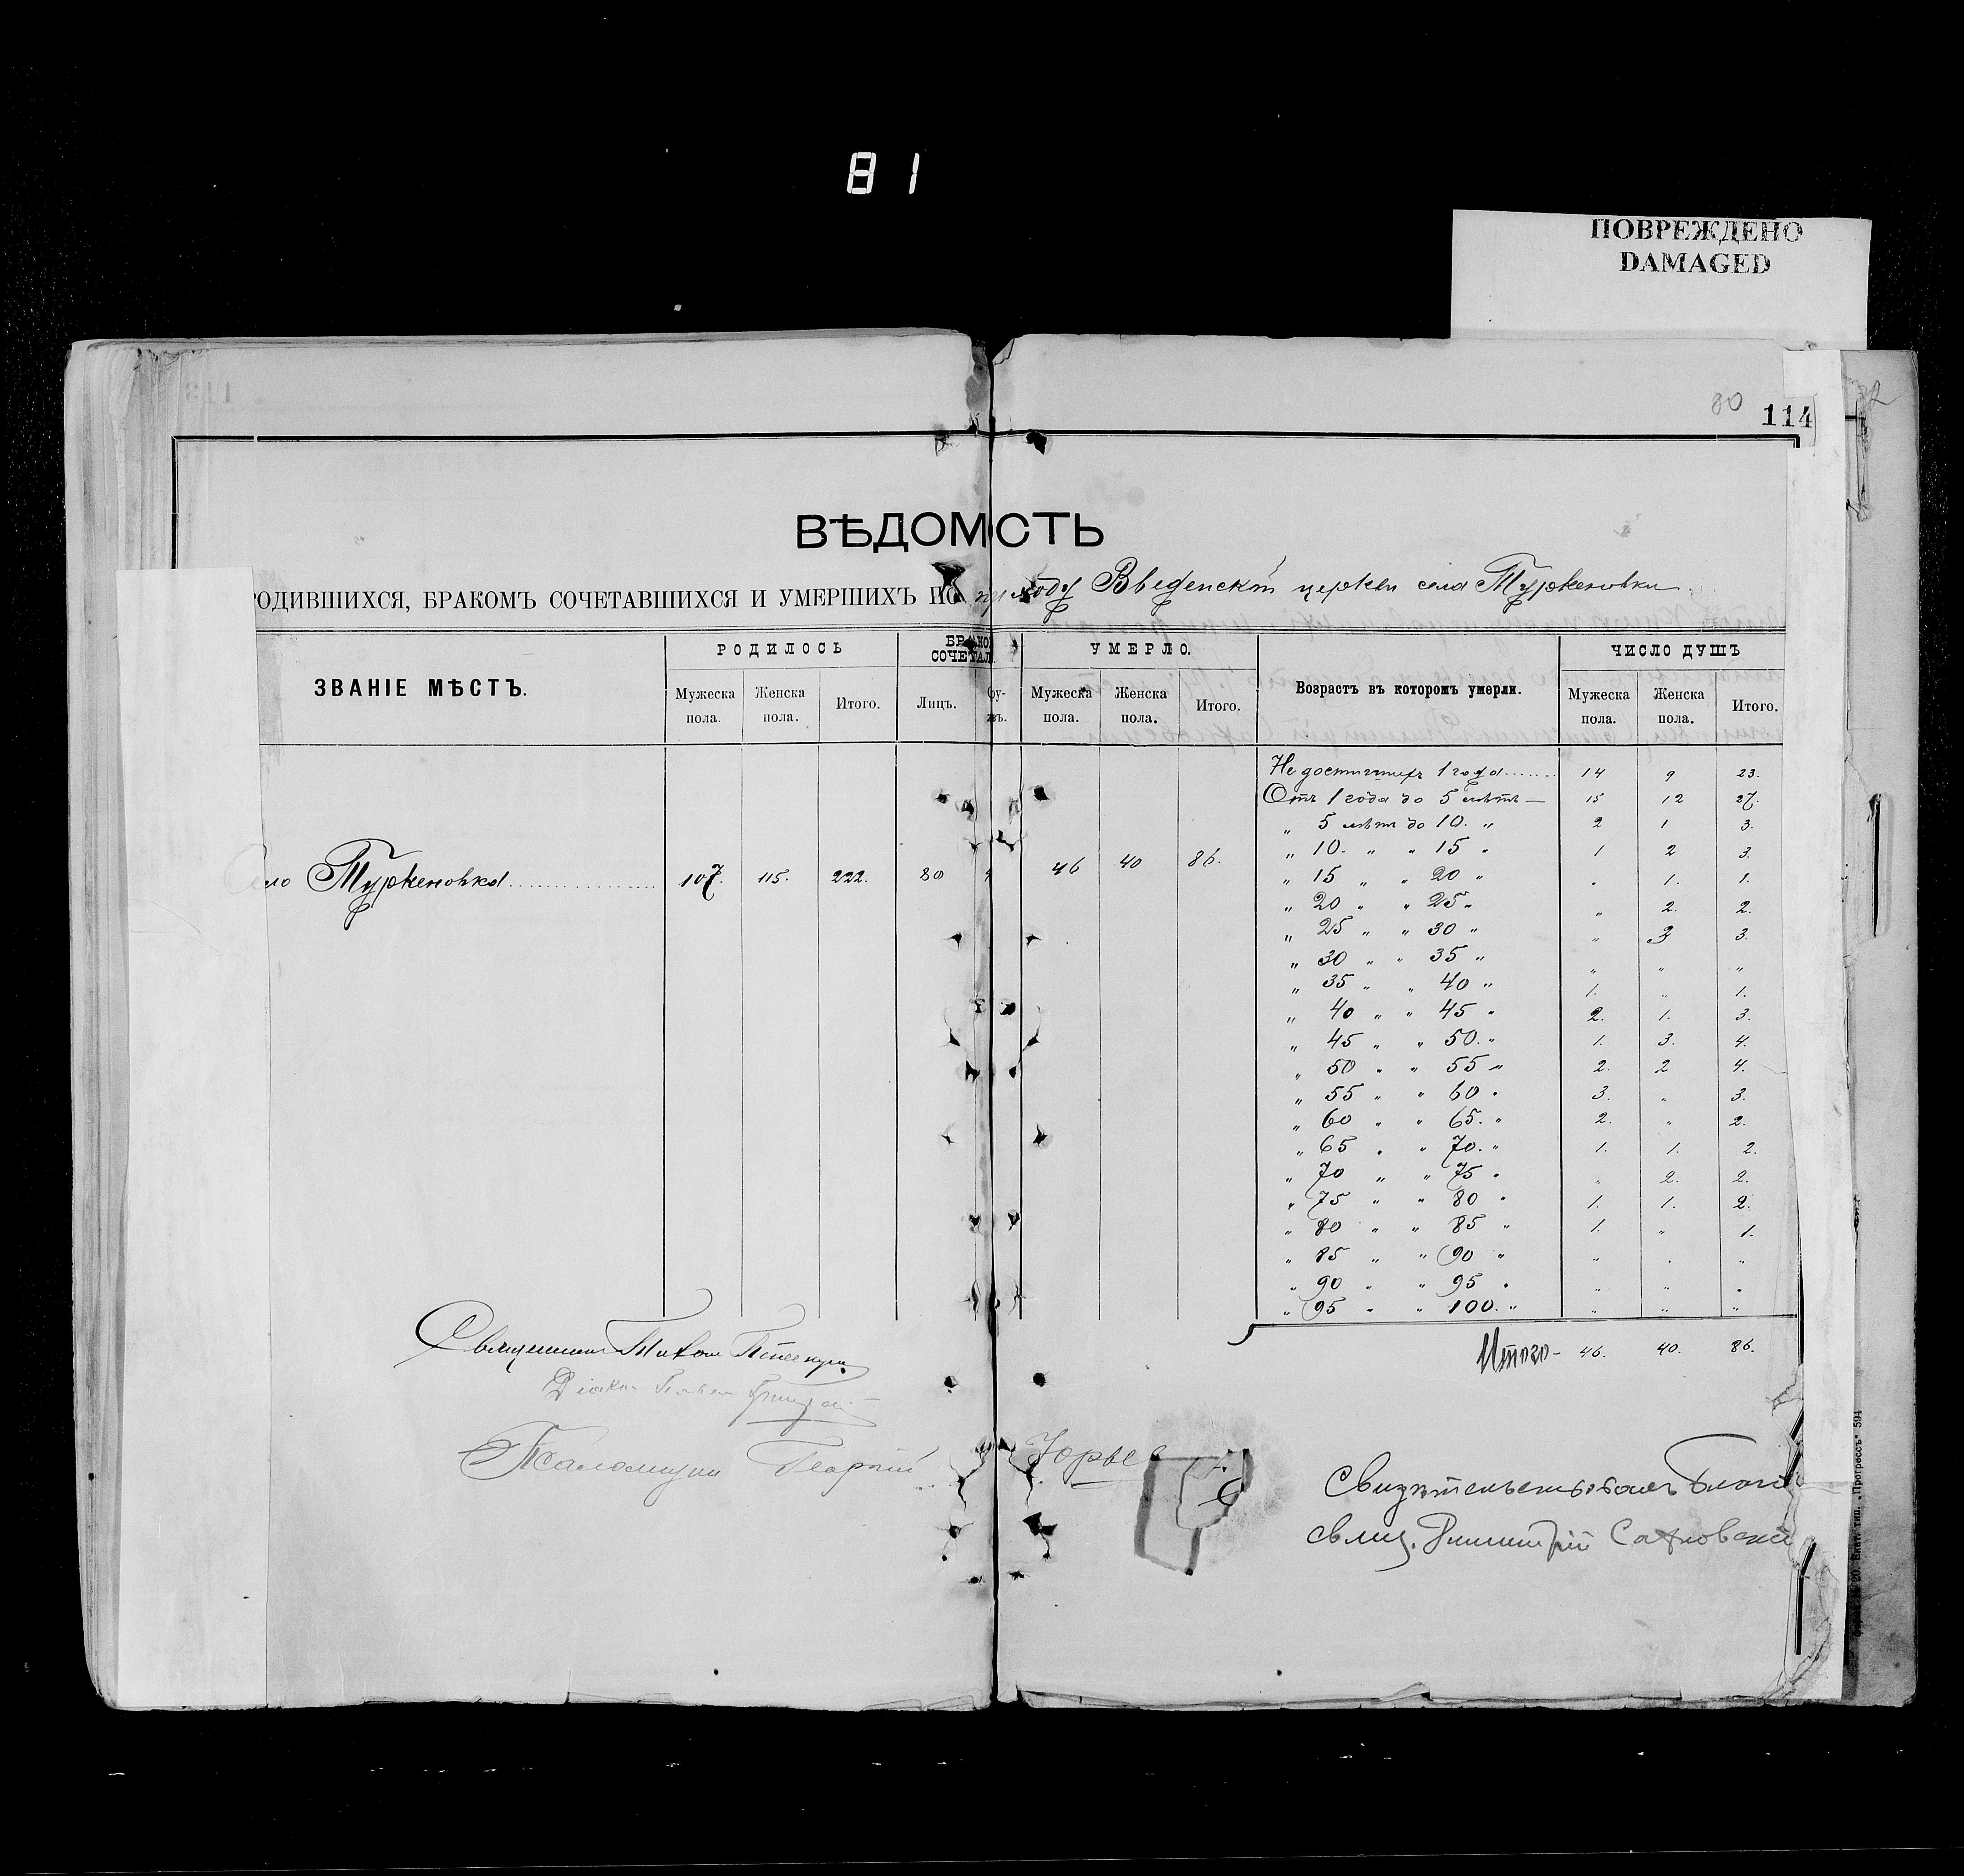 81
ПОВРЕЖДЕНО
DAMAGED
80 114
ВѢДОМСТЬ
РОДИВШИХСЯ, БРАКОМЪ СОЧЕТАВШИХСЯ И УМЕРШИХЪ ПО приходу Введенской церкви села Туркеновки
ЗВАНІЕ МѢСТЪ. РОДИЛОСЬ БРАКОМ СОЧЕТАЛ УМЕРЛО. Возрастъ въ которомъ умерли. ЧИСЛО ДУШЪ
Мужеска пола. Женска пола. Итого. Лицъ. Мужеска пола. Женска пола. Итого. Мужеска пола. Женска пола. Итого.
Не достигшихъ 1 года....... 14 9 23.
Отъ 1 года до 5 лѣтъ — 15 12 27.
„ 5 лѣтъ до 10. „ 2 1 3.
„ 10. „ „ 15 „ 1 2 3.
Село Туркеновка................. 107. 115. 222. 80 46 40 86.
„ 15 „ „ 20 „ „ 1. 1.
„ 20 „ „ 25 „ „ 2. 2.
„ 25 „ „ 30 „ „ 3 3.
„ 30 „ „ 35 „ „ „ „
„ 35 „ „ 40 „ 1. „ 1.
„ 40 „ „ 45 „ 2. 1. 3.
„ 45 „ „ 50. „ 1. 3. 4.
„ 50 „ „ 55 „ 2. 2 4.
„ 55 „ „ 60 „ 3. „ 3.
„ 60 „ „ 65. „ 2. „ 2.
„ 65 „ „ 70. „ 1. 1. 2.
„ 70 „ „ 75 „ „ 2. 2.
„ 75 „ „ 80 „ 1. 1. 2.
„ 80 „ „ 85 „ 1. „ 1.
„ 85 „ „ 90 „ „ „ „
„ 90 „ „ 95 „ „ „ „
„ 95 „ „ 100. „ „ „ „
Итого - 46. 40. 86.
Священникъ Тихон
Діакон Павел
Псаломщик Георгий Юрьев
Свидѣтельствовалъ Благо
свящ. Димитрій
„Прогрессъ“ 594